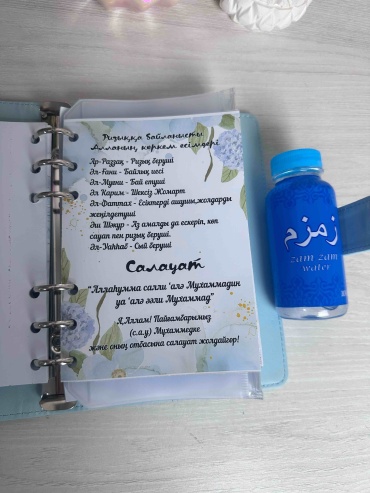 Ризыққа байланысты
Алланың көркем есімдері
Ар-Раззақ - Ризық беруші
Әл-Ғани - Байлық иесі
Әл-Муғни - Бай етуші
Әл Карим - Шексіз Жомарт
Әл-Фаттах - Есіктерді ашушы,жолдарды
жеңілдетуші
Әш Шакур - Аз амалды да ескеріп, көп
сауап пен ризық беруші.
Әл-Уаһһаб - Сый беруші
Салауат
"Аллаһумма салли 'алә Мухаммадин
уа 'алә әәли Мухаммад"
Я,Аллам! Пайғамбарымыз
(с.а.у) Мұхаммедке
және оның отбасына салауат жолдайгөр!
زمزم
zam zam
water